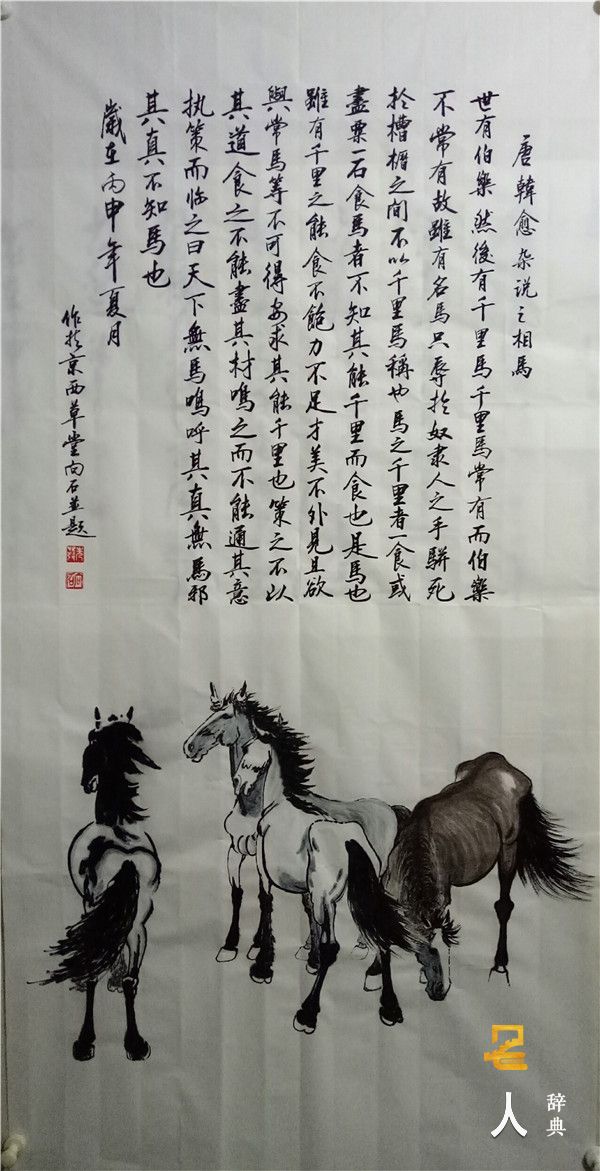 唐韓愈杂说之相馬
世有伯樂然後有千里馬千里馬常有而伯樂
不常有故雖有名馬只辱於奴隶人之手駢死
於槽櫪之间不以千里馬稱也馬之千里者一食或
盡粟一石食馬者不知其能千里而食也是馬也
雖有千里之能食不飽力不足才美不外見且欲
與常馬等不可得安求其能千里也策之不以
其道食之不能盡其材鳴之而不能通其意
执策而临之曰天下無馬鳴呼其真無馬邪
其真不知馬也
歲在丙申年夏月
作於京西草堂向石並題
人
辞典